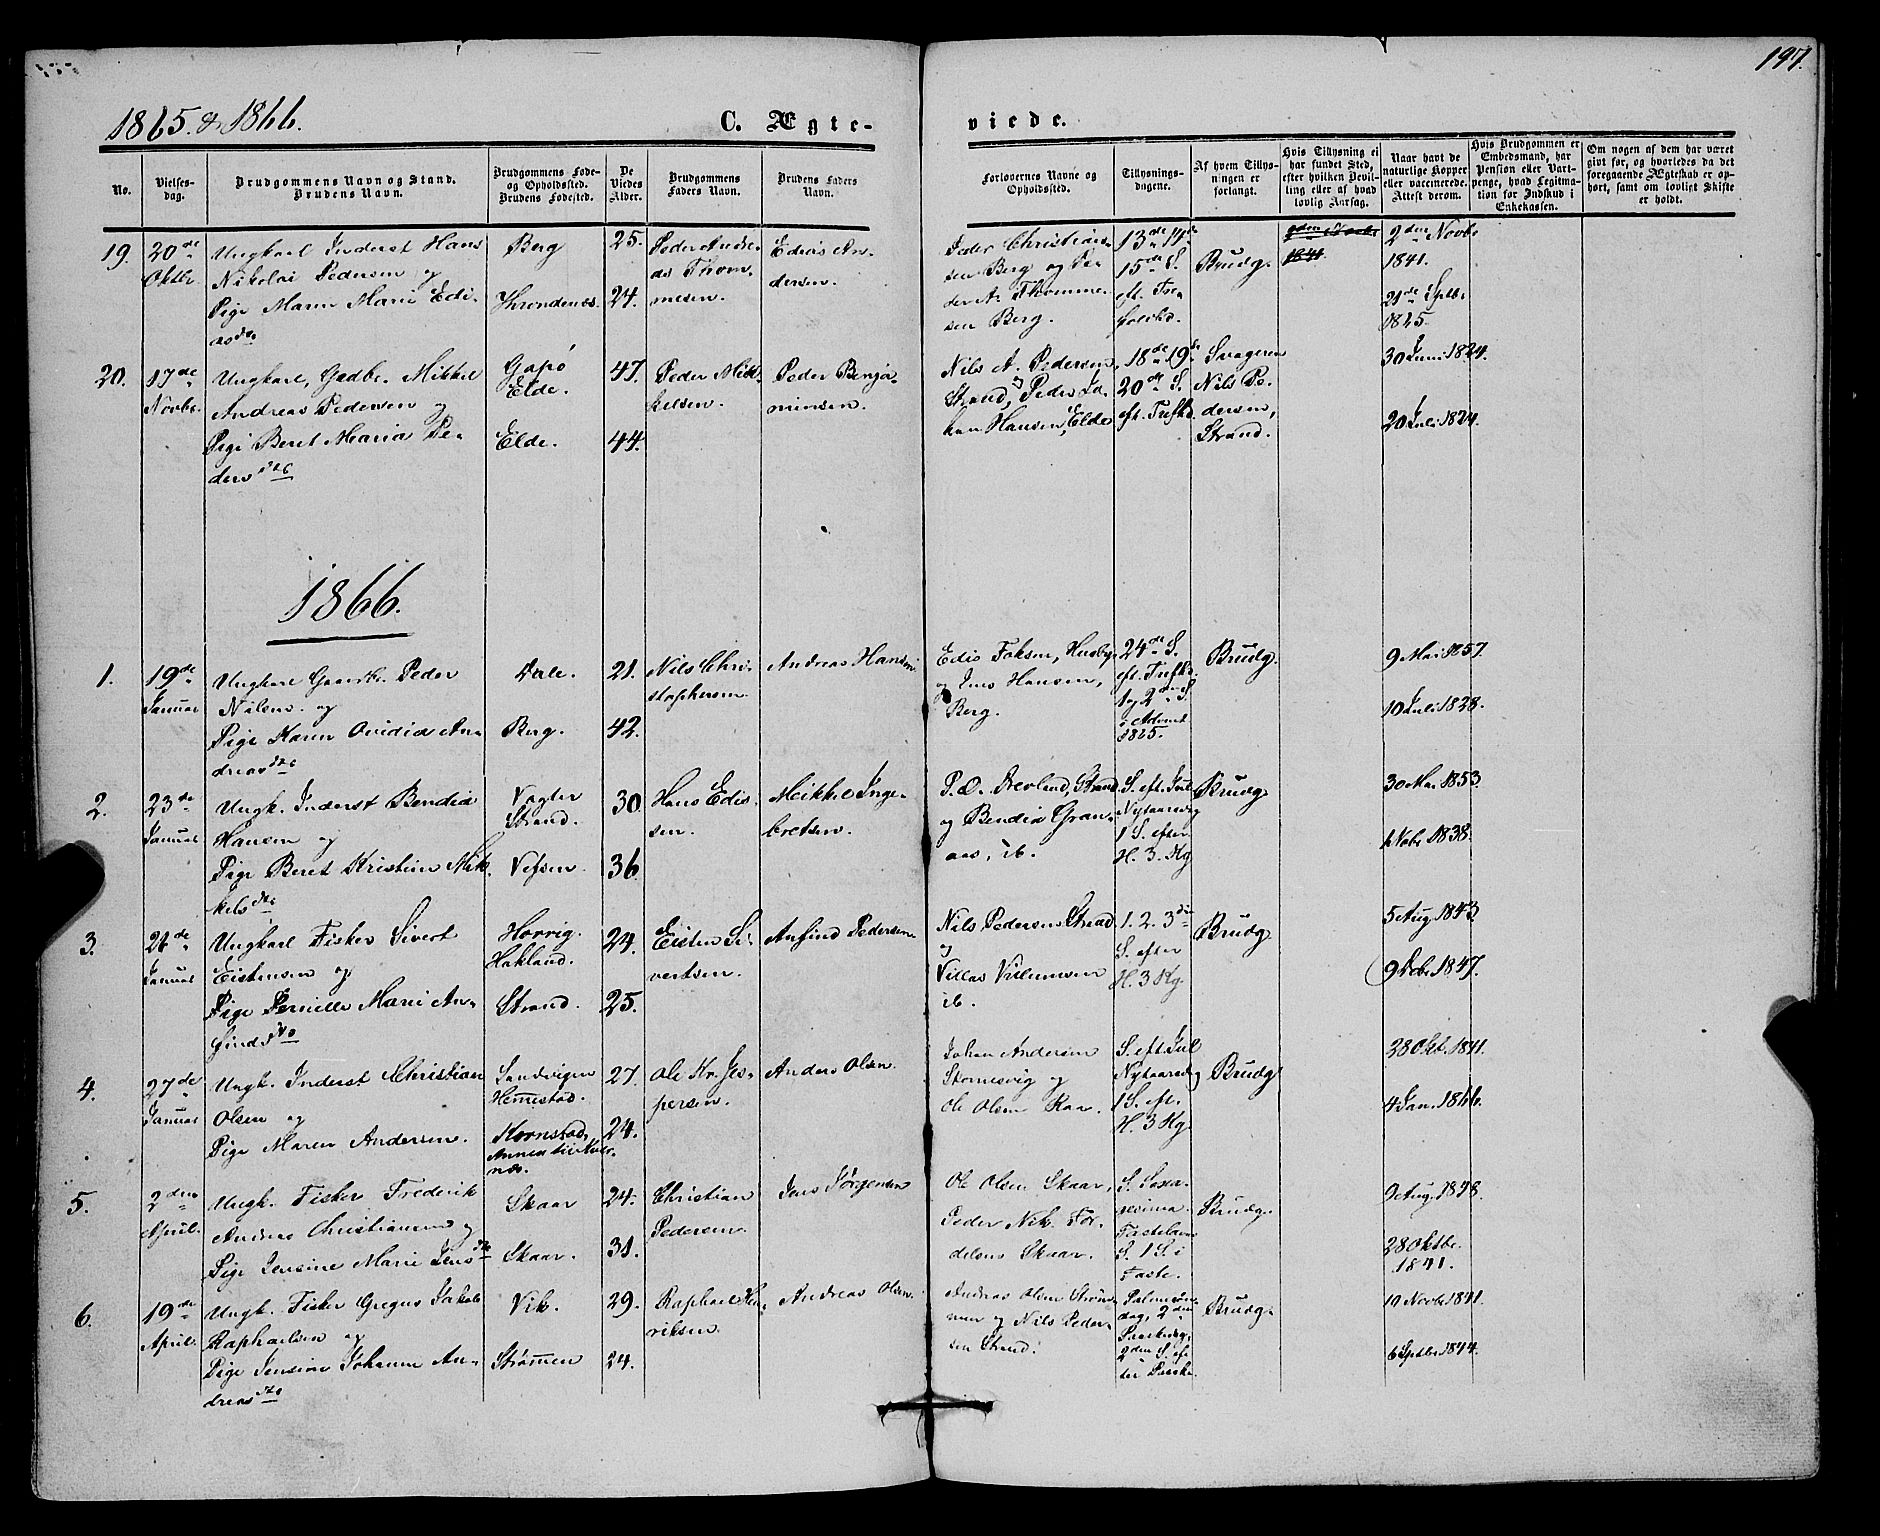 197.
1865. & 1866.
C. Ægte-
viede.
No.
Vielses-
dag.
Brudgommens Navn og Stand.
Brudens Navn.
Brudgommens Føde-
og Opholdssted.
Brudens Fødested.
De
Viedes
Alder.
Brudgommens
Faders Navn.
Brudens Faders
Navn.
Forlovernes Navne og
Opholdssted.
Tillysnings-
dagene.
Af hvem Tillys-
ningen er
forlangt.
Hvis Tillysning ei
har fundet Sted,
efter hvilken Bevil-
ling eller af hvad
lovlig Aarsag.
Naar havt de
naturlige Kopper
eller vaccinerede.
Attest derom.
Hvis Brudgommen er
Embedsmand, har
Pension eller Vart-
penge, hvad Legitima-
tion for Indskud i
Enkekassen.
Om nogen af dem har været
givt før, og hvorledes da det
foregaaende Ægteskab er op-
hørt, samt om lovligt Skifte
er holdt.
19.
20de
Oktbr.
Ungkarl Inderst Hans
Nikolai Pedersen og
Pige Maren Marie Edi-
asdtr
Berg
Throndenes.
25.
24.
Peder Andre-
as Thom-
mesen.
Edias An-
dersen.
Peder Christian-
sen Berg og Pe-
der A. Thomme-
sen Berg.
13de 14de
15de S.
eft. Tre-
foldhd.
Brudg.
2den Novbr
1841.
21de Septbr
1865.
20.
17de
Novbr.
Ungkarl, Gadbr. Mikkel
Andreas Pedersen og
Pige Beret Maria Pe-
dersdtr
Gapø
Elde.
Elde.
47.
44.
Peder Mik-
kelsen.
Peder Benja-
minsen.
Nils A. Pedersen
Strand, og Peder Jo-
han Hansen, Elde
18de 19de
20de S.
eft. Trefhd.
Svogeren
Nils Pe-
dersen,
Strand.
30 Juni 1824.
20 Juli 1824.
1866.
1.
19de
Januar
Ungkarl Gaardbr. Peder
Nilsen og
Pige Karen Ovidia An-
dreasdtr
Dale.
Berg.
21.
42.
Nils Chri-
stophersen
Andreas Hansen
Edis Faksen, Husby
og Jens Hansen,
Berg.
24de S.
eft. Trefhd.
1 og 2den S.
i Advent
1865.
Brudg.
9 Mai 1857.
10 Juli 1828.
2.
23de
Januar
Ungk. Inderst Bendix
Hansen og
Pige Beret Kristine Mik-
kelsdtr
Vogter
Strand.
Vefsen.
30
36.
Hans Edis-
sen.
Mikkel Inge-
bretsen.
P. O. Nevland, Strand
og Bendix Gran-
aas, ib.
S. eft. Jul
Nytaarsdg
1 S. efter
H. 3 Kg
Brudg
30 Mai 1853
1 Nobr 1838.
3.
26de
Januar
Ungkarl Fisker Sivert
Eistensen og
Pige Pernille Marie An-
findsdtr
Horvig.
Hakland.
Strand.
24.
25.
Eisten Si-
vertsen.
Anfind Pedersen
Nils Pedersen Strand
og
Villas Villumsen
ib.
1. 2. 3die
S. efter
H. 3 Kg.
Brudg
5 Aug 1843
9 Dcbr 1847.
4.
27de
Januar
Ungk. Inderst Christian
Olsen og
Pige Maren Andersen.
Sandvigen
Hemestad.
Kornstad,
27.
24.
Ole Kr. Jes-
persen.
Anders Olsen
Johan Andersen
Stornesvig og
Ole Olsen Kaa.
S. eft. Jul
Nytaarsdg
1 S. eft.
H. 3 Kg
Brudg
28 Okt. 1841.
4 Jan. 1866.
5.
2den
April.
Ungk. Fisker Frederik
Andreas Christiansen og
Pige Jensine Marie Jensdtr
Skaar
Skaar.
24.
31.
Christian
Pedersen.
Jens Jørgensen
Ole Olsen Skaar,
Peder Nik. For-
delsen Skaar.
S. Sexa-
gesima
Fastelavns
S. 1 S. i
Faste.
Brudg.
9 Aug. 1848.
28 Oktbr.
1841.
6.
19de
April.
Ungk. Fisker Gregus Jakob
Raphaelsen og
Pige Jensine Johanne An-
dreasdtr
Vik.
Strømmen
29.
24.
Raphael Hen-
riksen.
Andreas Olsen.
Andreas Olsen Strøm-
men og Nils Peder-
sen Strand.
Palmesøn-
dag, 2den
Paaskedg,
2den S. ef-
ter Paaske.
Brudg.
10 Novbr 1841.
6 Septbr 1844.